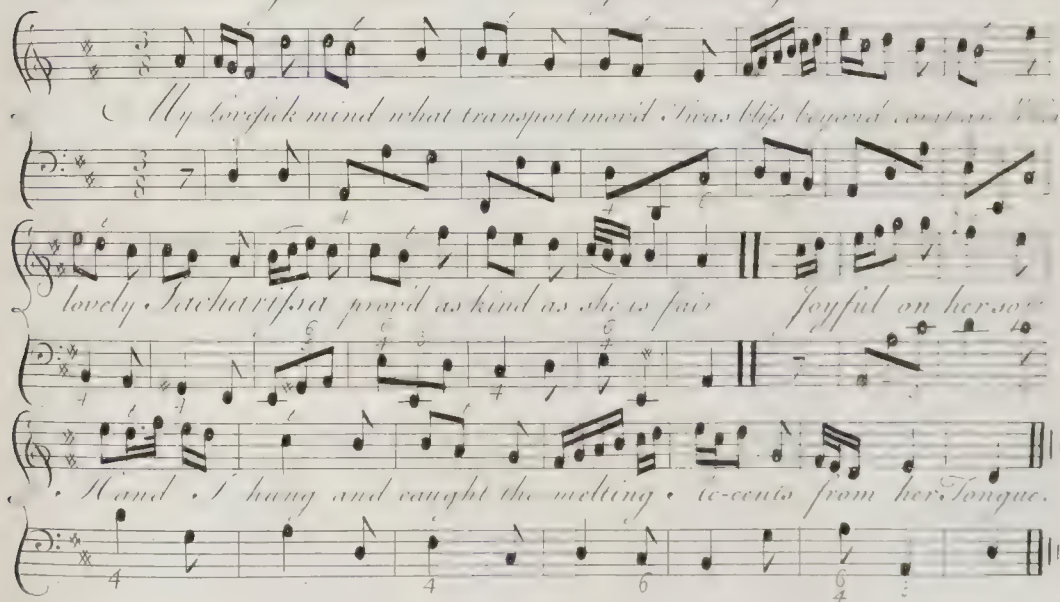 My lovesick mind what transport mov'd Twas bliss beyond
lovely Sacharissa prov'd as kind as she is fair Joyful on her
Hand I hung and caught the melting Ac-cents from her Tongue.